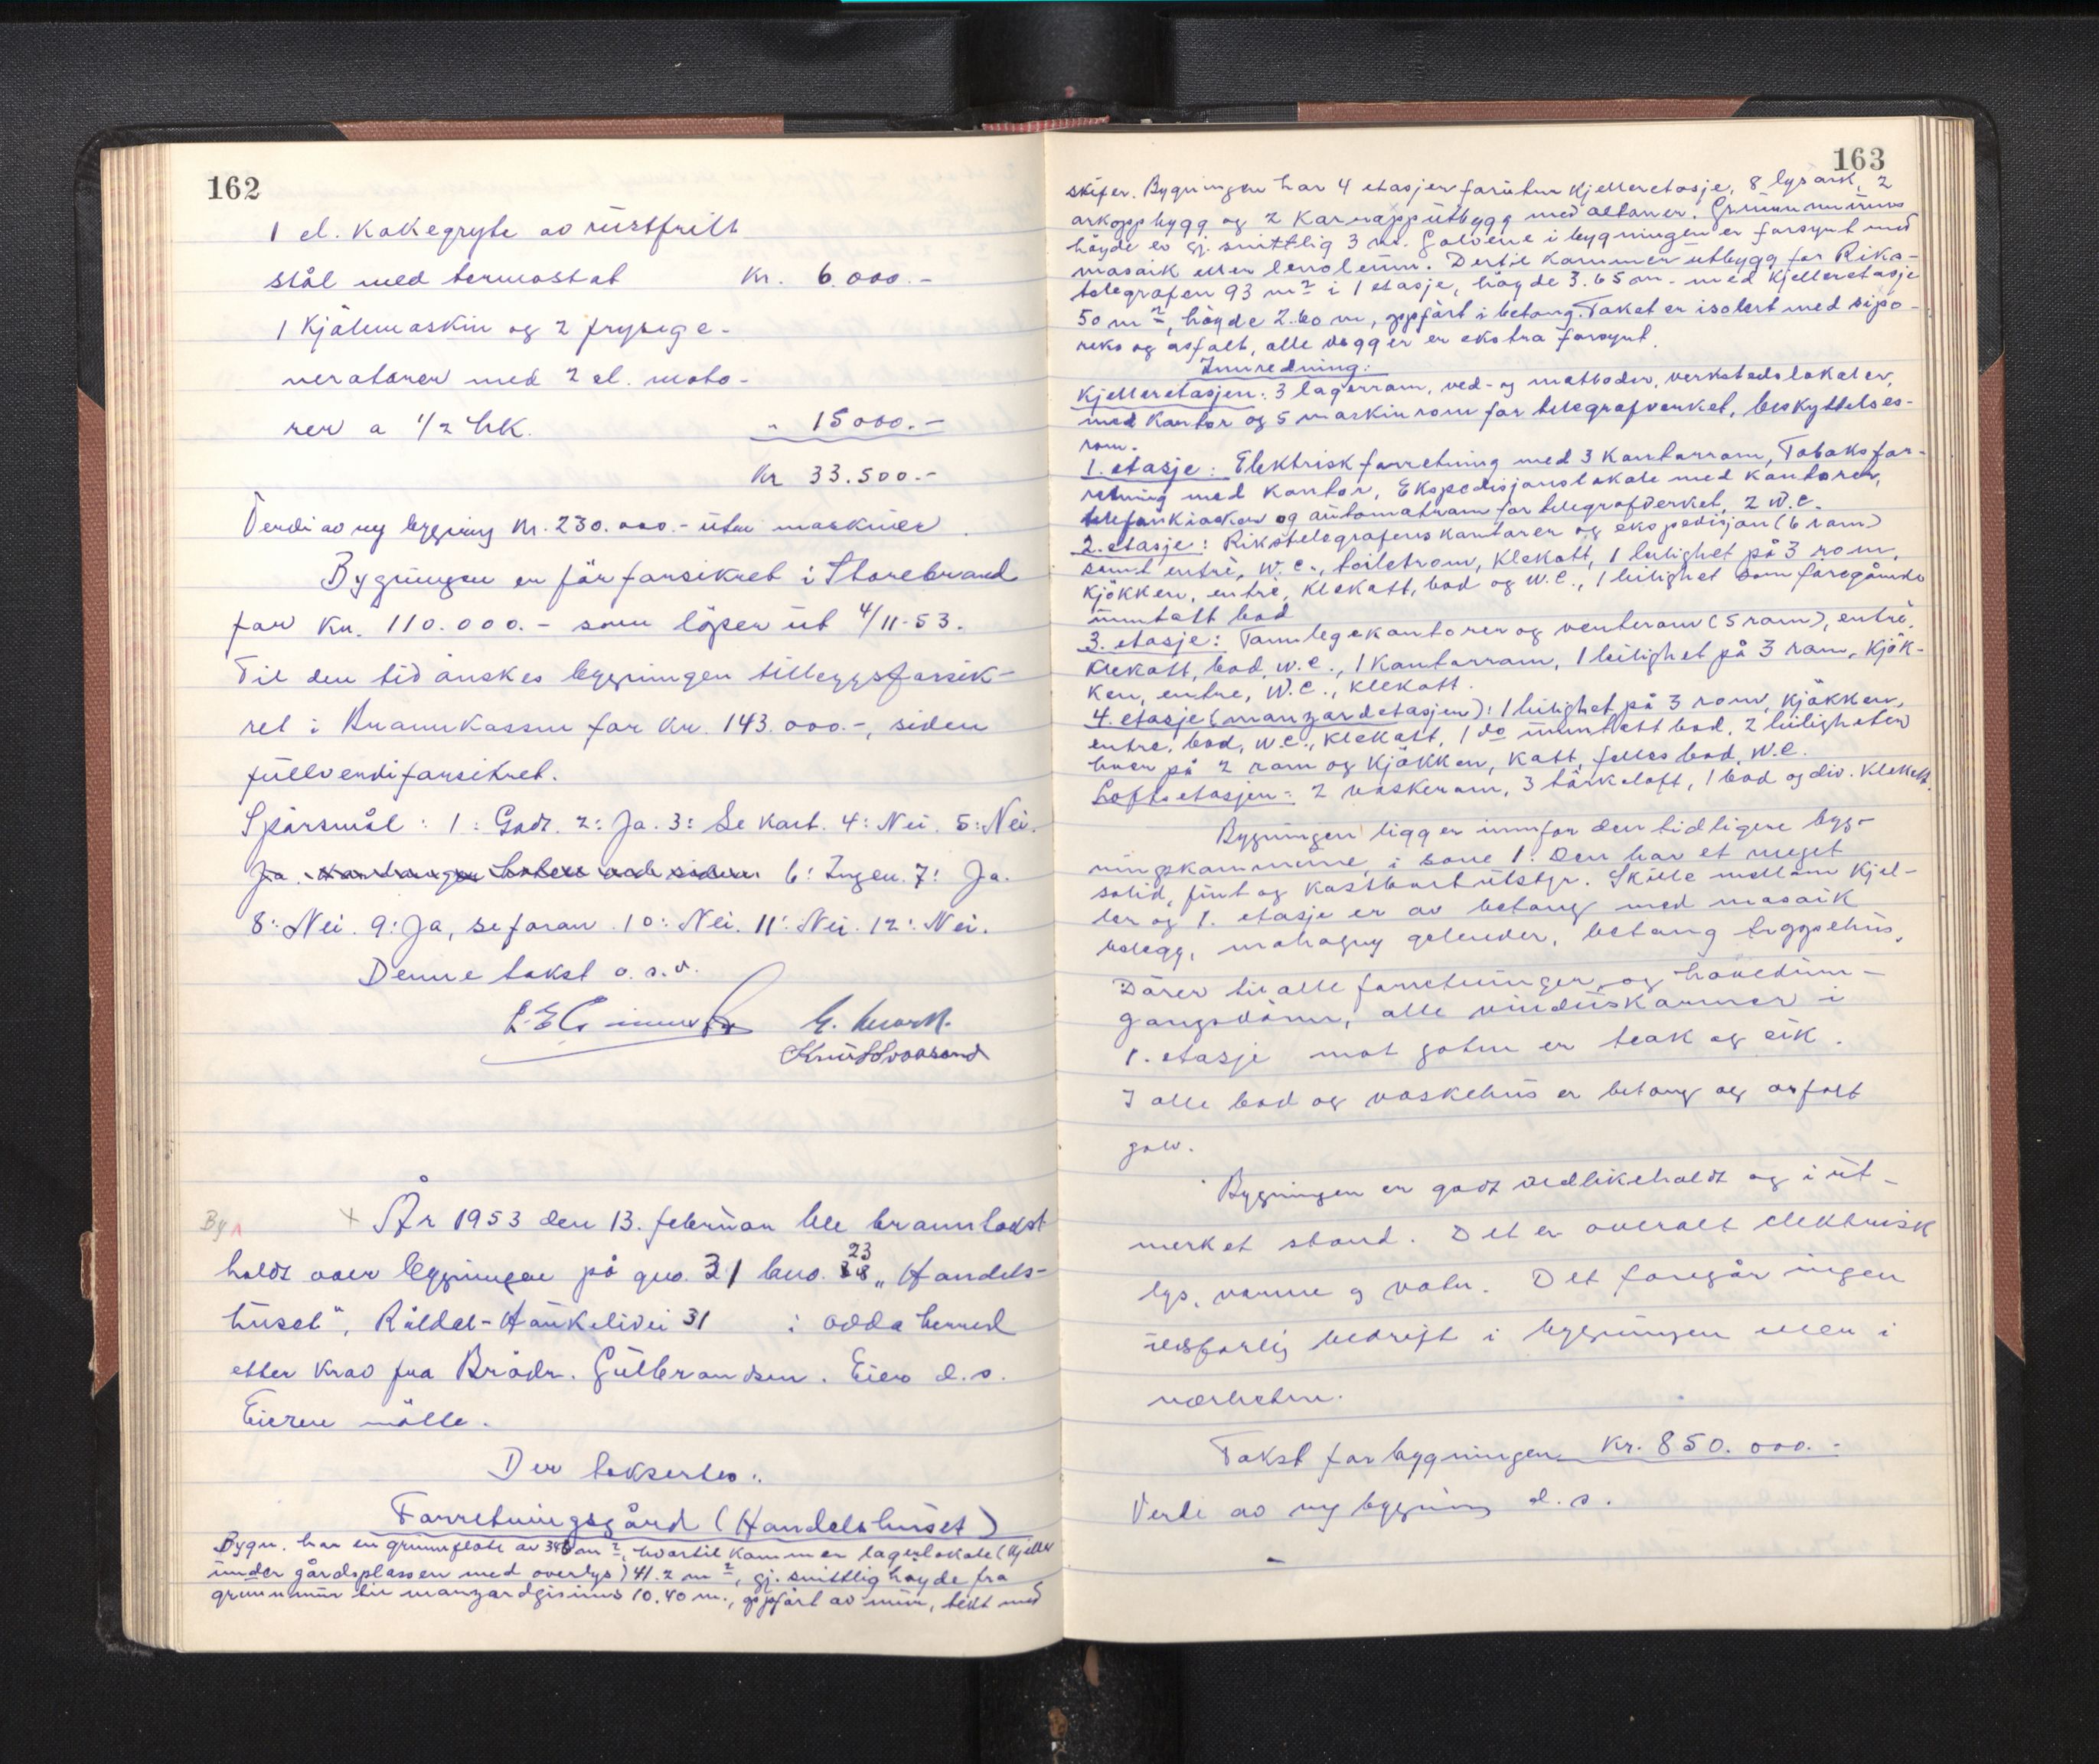 162
1 el. kokegryte av rustfritt
stål med termostat Kr. 6.000.-
1 Kjølemaskin og 2 frysege-
neratorer med 2 el. moto-
rer a 1/2 hk. " 15000.-
Kr 33.500.-
Verdi av ny bygning Kr. 230.000.- uten maskiner.
Bygningen er før forsikret i Storebrand
for Kr. 110.000.- som löper ut 4/11-53.
Til den tid önskes bygningen tilleggsforsik-
ret i Brannkassen for Kr. 143.000.-, siden
fullverdiforsikret.
Spörsmål: 1: Godt. 2: Ja. 3: Se kart. 4: Nei. 5: Nei.
Ja. 6: Ingen. 7: Ja.
8: Nei. 9: Ja, se foran. 10: Nei. 11: Nei. 12: Nei.
Denne takst o.s.v.
By 1 + År 1953 den 13. februar ble branntakst
holdt over bygningen på gno. 31 bno. 23 "Handels-
huset", Röldal-Haukelivei 31 i Odda herred
etter krav fra Brödr. Gulbrandsen. Eier d.s.
Eieren mötte.
Der taksertes:
Forretningsgård (Handelshuset)
Bygn. har en grunnflate av 346 m², hvortil kommer lagerlokale (Kjeller
under gårdsplassen med overlys) 41.2 m², gj. snittlig höyde fra
grunnmur til manzardgisims 10.40 m., oppfört av mur, tekt med
163
skifer. Bygningen har 4 etasjer foruten Kjelleretasje, 8 lysark, 2
arkoppbygg og 2 Karnapputbygg med altaner. Grunnmurens
höyde er gj. snittlig 3 m. Golvene i bygningen er forsynt med
mosaik eller lenoleum. Dertil kommer utbygg for Riks-
telegrafen 93 m² i 1 etasje, höyde 3.65 m. med Kjelleretasje
50 m², höyde 2.60 m, oppfört i betong. Taket er isolert med sipo-
reks og asfalt, alle vegger er ekstra forsynt.
Innredning:
Kjelleretasjen: 3 lagerrom, ved- og matboder, verkstedslokaler,
med Kontor og 5 maskinrom for telegrafverket, beskyttelses-
rom.
1. etasje: Elektrisk forretning med 3 Kontorrom, Tobaksfor-
retning med Kontor, Ekspedisjonslokale med Kontorer,
telefonkiosker og automatrom for telegrafverket, 2 W.C.
2. etasje: Rikstelegrafens kontorer og ekspedisjon (6 rom)
samt entrè, W.C., toiletrom, Klekott, 1 leilighet på 3 rom,
Kjökken, entrè, Klekott, bad og W.C., 1 leilighet som foregående
unntatt bad
3. etasje: Tannlegekontorer og venterom (5 rom), entrè,
Klekott, bad, W.C., 1 Kontorrom, 1 leilighet på 3 rom, Kjök-
ken, entre, W.C., Klekott.
4. etasje (manzardetasjen): 1 leilighet på 3 rom, Kjökken,
entre, bad, W.C., Klekott, 1 do unntatt bad, 2 leiligheter
hver på 2 rom og Kjökken, Kott, felles bad, W.C.
Loftsetasjen: 2 vaskerom, 3 törkeloft, 1 bod og div. Klekott.
Bygningen ligger innfor den tidligere byg-
ningskommune, i sone 1. Den har et meget
solid, fint og kostbart utstyr. Skille mellom Kjel-
ler og 1. etasje er av betong med mosaik
belegg, mahogny gelender, betong trappehus,
Dörer til alle forretninger og hovedinn-
gangsdörer, alle vinduskarmer i
1. etasje mot gaten er teak og eik.
I alle bad og vaskehus er betong og asfalt
golv.
Bygningen er godt vedlikeholdt og i ut-
merket stand. Det er overalt elektrisk
lys, varme og vater. Det foregår ingen
ildsfarlig bedrift i bygningen eller i
nærheten.
Takst for bygningen Kr. 850.000.-
Verdi av ny bygning d.s.